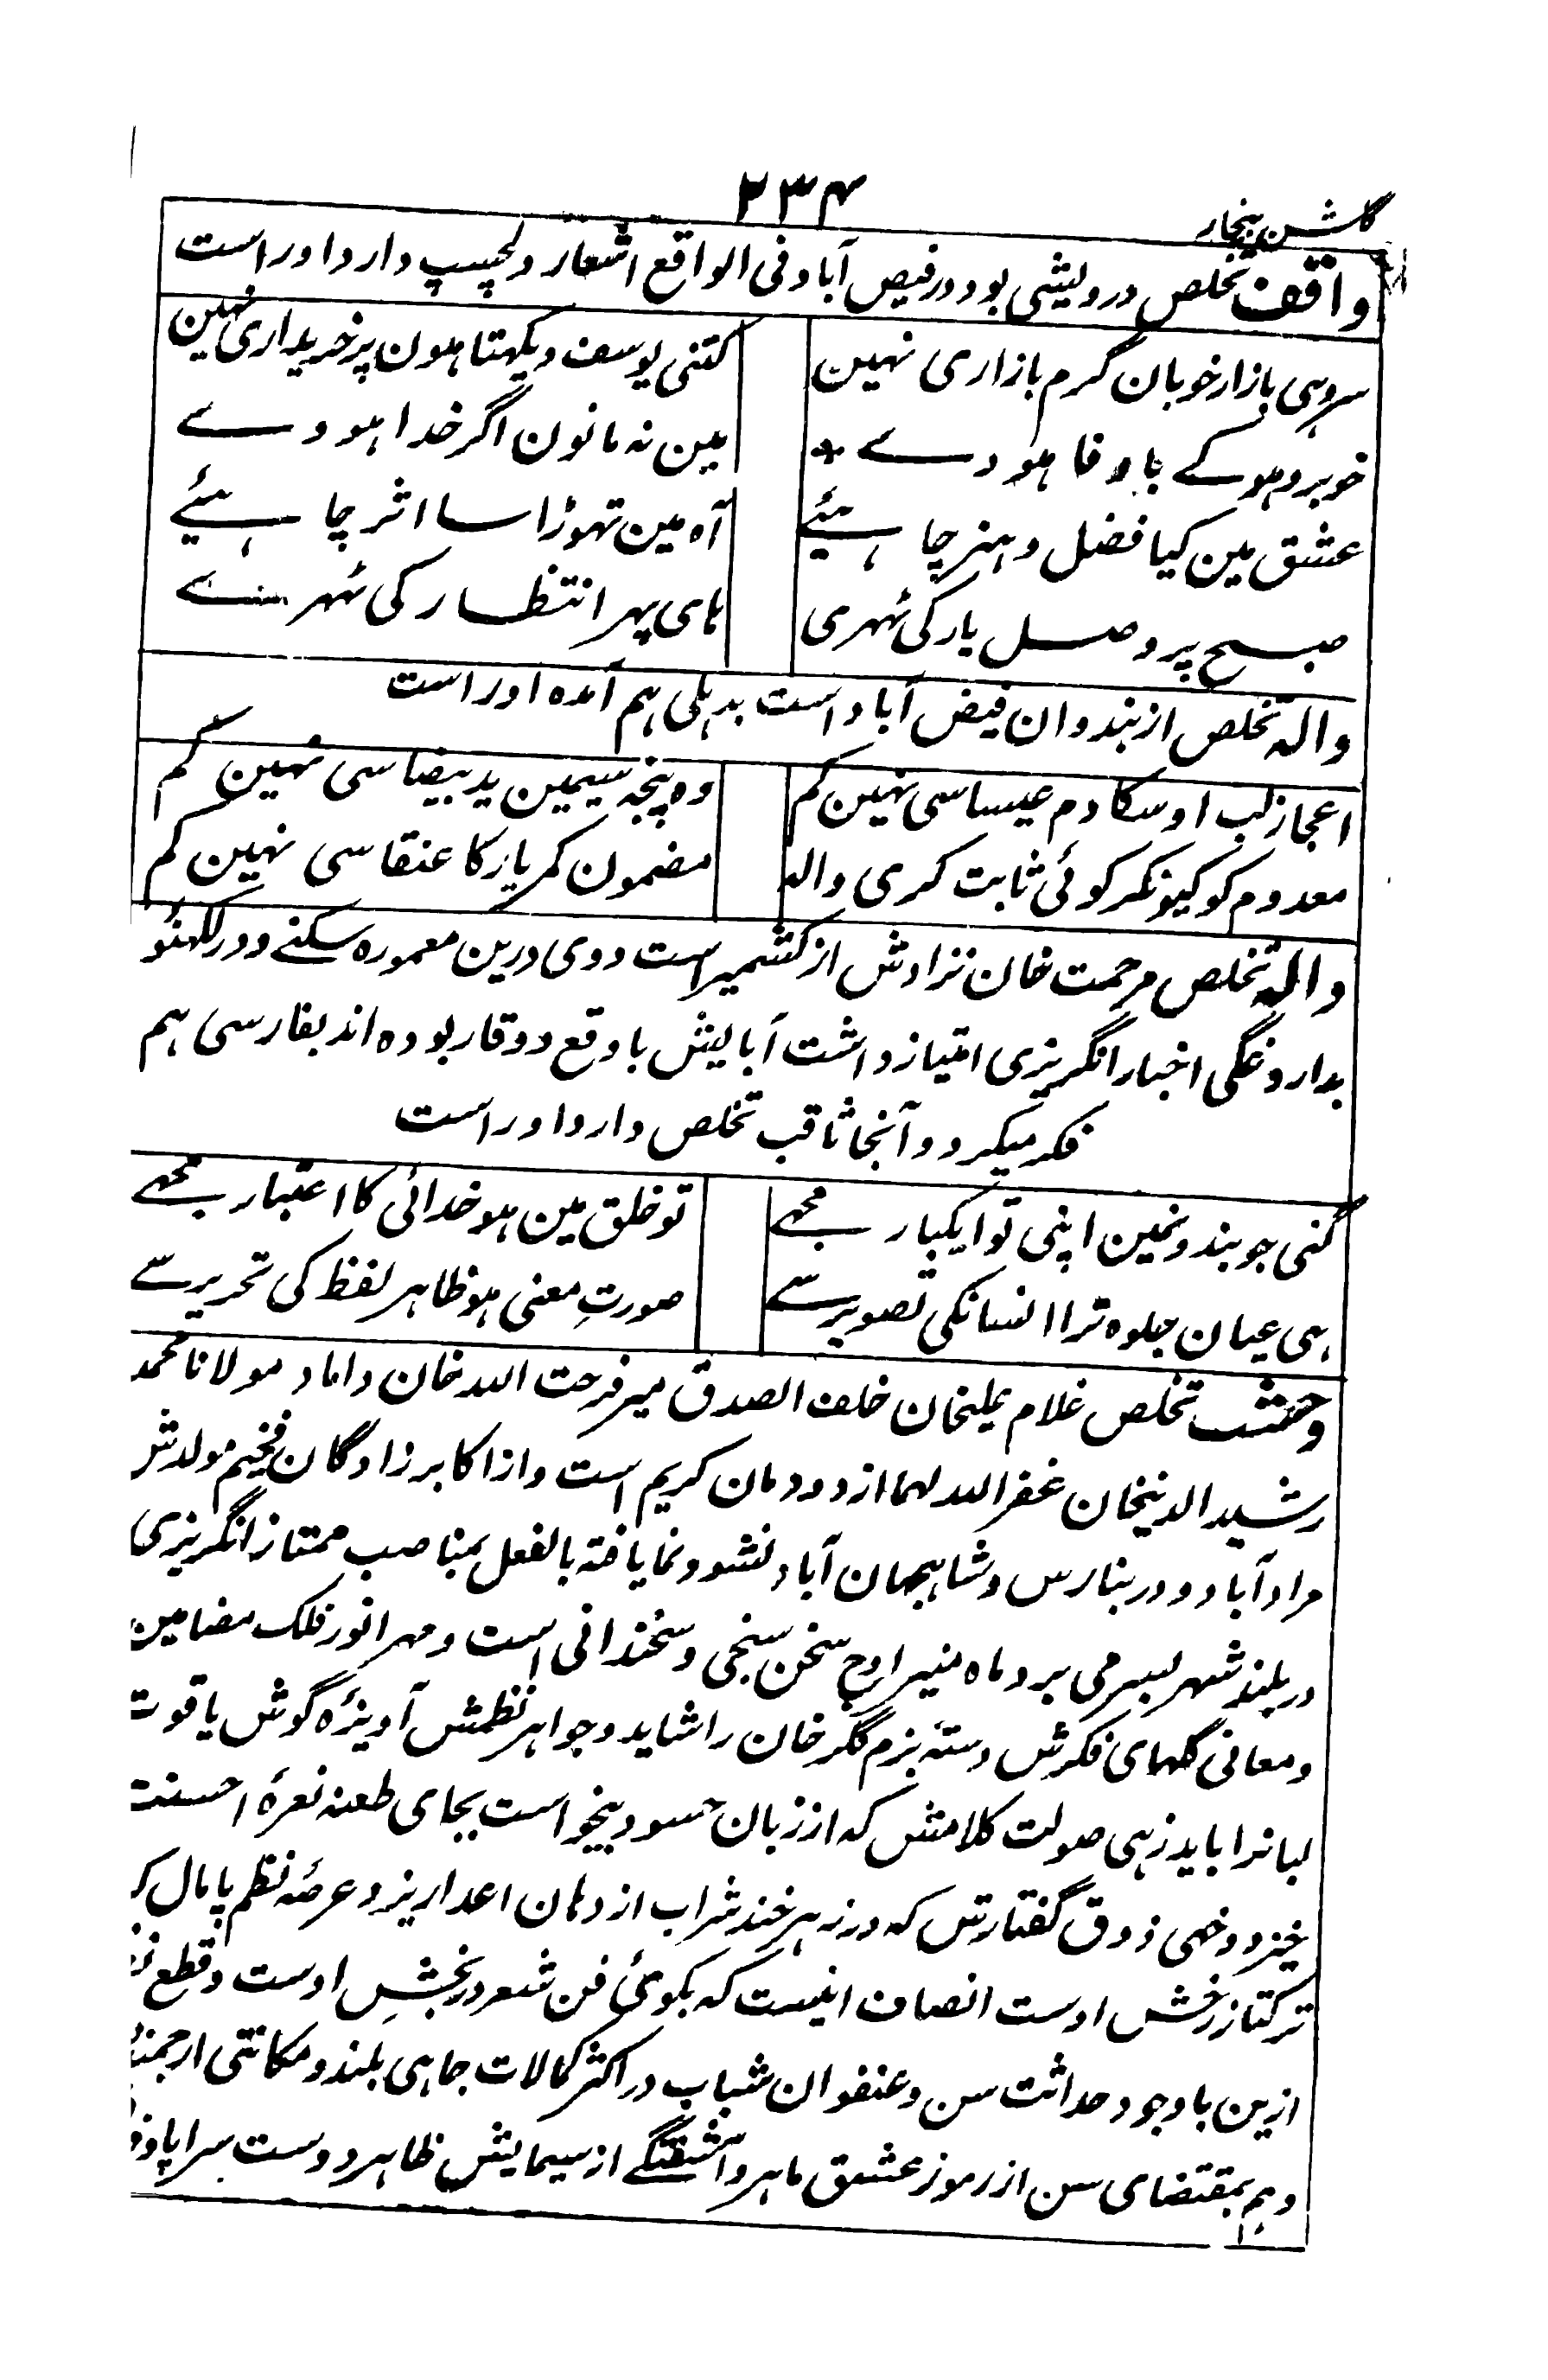 گلشن بیخار
۲۳۴
واقف تخلص درویشی بود در فیض آباد فی الواقع اشعار دلچسپ دارد اوراست
سر وہی بازار خوبان گرم بازاری نہین
کتنی یوسف دیکہتا ہون پر خریداری نہین
خوبرو ہو کے با وفا ہووے
مین نہ مانون اگر خدا ہووے
عشق مین کیا فضل و ہنر چاہئیے
آہ مین تہوڑا سا اثر چاہئیے
صبح پر وصل یار کی ٹہری
ہای پہر انتظار کی ٹہرے
والہ تخلص از ہندوان فیض آباد است بدہلی ہم آمدہ اوراست
اعجاز لب اوسکا دم عیسا سی نہین کم
وہ پنجہ سیمین ید بیضا سی نہین کم
معدوم کو کیونکر کوئی ثابت کری والہ
مضمون کمر یار کا عنقا سی نہین کم
والہ تخلص مرحمت خان نژادش از کشمیر است و وی درین معمورہ سکنے و در لکہنئو
بداروغگی اخبار انگریزی امتیاز داشت آبایش با وقع و وقار بودہ اند بفارسی ہم
فکر میکرد و آنجا ثاقب تخلص دارد اوراست
گنی جو بندونمین اپنی تو ایکبار مجہے
تو خلق مین ہو خدائی کا اعتبار مجہے
ہی عیان جلوہ ترا انسانکی تصویر سے
صورتِ معنی ہو ظاہر لفظ کی تحریر سے
وحشت تخلص غلام علیخان خلف الصدق میر فرحت اللہ خان داماد مولانا محمد
رشید الدینخان غفر اللہ لہما از دودمان کریم است و از اکابر زادگان فخیم مولدش
مراد آباد و در بنارس و شاہجہان آباد نشو و نما یافتہ بالفعل بمناصب ممتاز انگریزی
در بلند شہر بسر می برد ماہ منیر اوج سخن سنجی و سخندانی است و مہر انور فلک مضامین
و معانی گلہای فکرش دستۂ بزم گلرخان را شاید و جواہر نظمش آویزۂ گوش یاقوت
لبانرا باید زہی صولت کلامش کہ از زبان حسود بیخواست بجای طعنہ نعرۂ احسنت
خیزد و خہی ذوق گفتارش کہ در زہر خند شراب از دہان اعدا ریزد عرصۂ نظم پامال
ترکتاز رخش اوست انصاف اینست کہ بکوئی فن شعر در بخشِ اوست و قطع
ازین با وجود حداثت سن و عنفوان شباب در اکثر کمالات جاہی بلند و مکانتی ارجمند
و ہم بمقتضای سن از رموز عشق ماہر و آشفتگے از سیمایش ظاہر و دوست سراپا